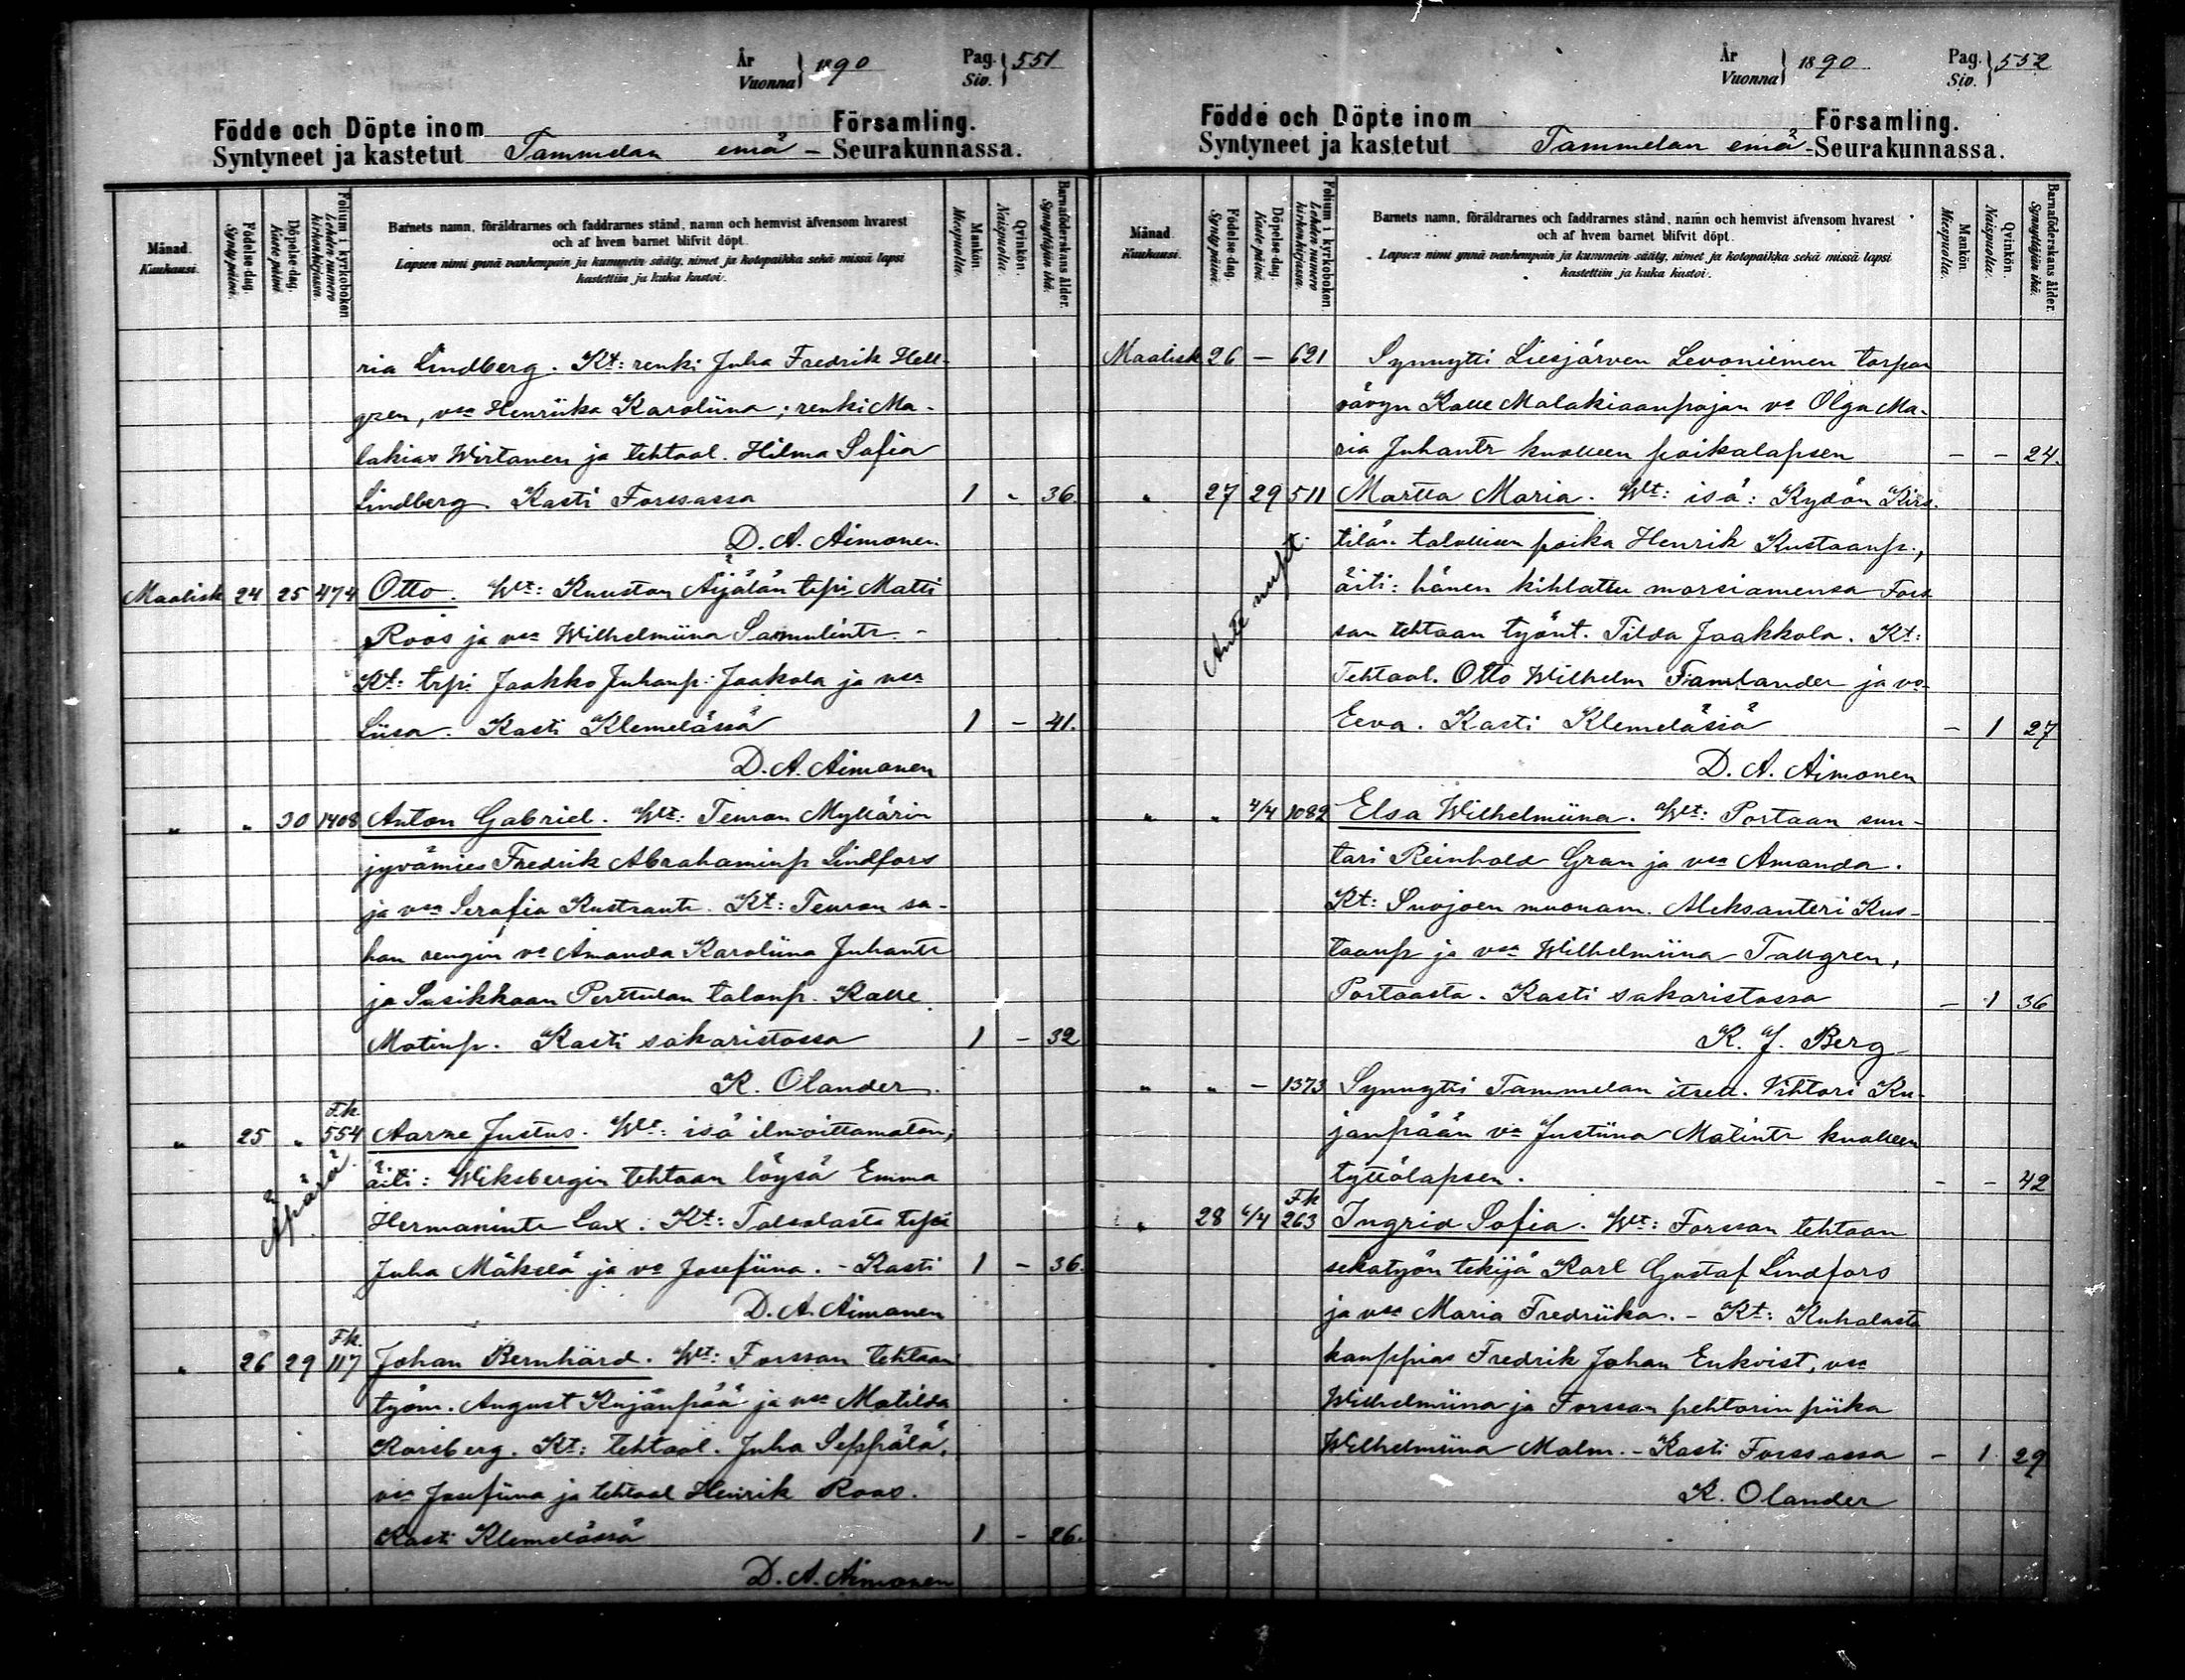 År
Vuonna } 1890
Pag.
Siv. } 551
Födde och Döpte inom Församling.
Syntyneet ja kastetut Tammelan emä - Seurakunnassa.
Månad.
Kuukausi.
Födelse-dag.
Synty päivä.
Döpelse-dag.
Kaste päivä
Folium i kyrkoboken
Lehden numero
kirkonkirjassa.
Barnets namn, föräldrarnes och faddrarnes stånd, namn och hemvist äfvensom hvarest
och af hvem barnet blifvit döpt.
Lapsen nimi ynnä vanhempain ja kummein sääty, nimet ja kotopaikka sekä missä lapsi
kastettiin ja kuka kastoi.
Mankön.
Miespuolta.
Qvinkön.
Naispuolta.
Barnaföderskans ålder.
Synnyttäjän ikä.
ria Lindberg. Kt: renki Juha Fredrik Hell-
gren, vaa Henriika Karoliina; renki Ma-
lakias Wirtanen ja tehtaal. Hilma Sofia
Lindberg. Kasti Forssassa 1 - 36.
D. A. Aimonen
Maalisk 24 25 474 Otto. Wlt: Kuuston Äijälän trpi Matti
Roos ja vaa Wilhelmiina Samulintr. -
Kt: trpi Jaakko Juhanp. Jaakola ja vaa
Liisa. Kasti Klemelässä 1 - 41.
D. A. Aimonen
" " 30 1408 Anton Gabriel. Wlt: Teuron Myllärin
jyvämies Fredrik Abrahaminp Lindfors
ja vaa Serafia Kustaantr. Kt: Teuron sa-
han rengin va Amanda Karoliina Juhantr
ja Susikkaan Perttulan talonp. Kalle
Matinp. Kasti sakaristossa 1 - 32
K. Olander.
" 25 " Fk. 554 Aarne Justus. Wlt: isä ilmoittamaton;
Äpärä äiti: Wiksbergin tehtaan löysä Emma
Hermanintr Lax. Kt: Talsolasta trpi
Juha Mäkelä ja va Josefiina. - Kasti 1 - 36.
D. A. Aimonen
" 26 29 Fk. 117 Johan Bernhärd. Wlt: Forssan tehtaan
työm. August Kujanpää ja vaa Matilda
Korsberg. Kt: tehtaal. Juha Seppälä,
vaa Josefiina ja tehtaal Henrik Roos.
Kasti Klemelässä 1 - 26.
D. A. Aimonen
År
Vuonna } 1890
Pag.
Siv. } 552
Födde och Döpte inom Församling.
Syntyneet ja kastetut Tammelan emä - Seurakunnassa.
Månad
Kuukausi.
Födelse-dag.
Synty päivä.
Döpelse-dag.
Kaste päivä.
Folium i kyrkoboken.
Lehden numero
kirkonkirjassa.
Barnets namn, föräldrarnes och faddrarnes stånd, namn och hemvist äfvensom hvarest
och af hvem barnet blifvit döpt.
Lapsen nimi ynnä vanhempain ja kummein sääty, nimet ja kotopaikka sekä missä lapsi
kastettiin ja kuka kastoi.
Mankön.
Miespuolta.
Qvinkön.
Naispuolta.
Barnaföderskans ålder.
Synnyttäjän ikä.
Maalisk 26 - 621 Synnytti Liesjärven Levoniemen torpan
vävyn Kalle Malakiaanpojan va Olga Ma-
ria Juhantr kuolleen poikalapsen - - 24.
" 27 29 511 Martta Maria. Wlt: isä: Kydön Kirs-
tilän talollisen poika Henrik Kustaanp.,
Ante nupt. äiti: hänen kihlattu morsiamensa Fors-
san tehtaan työnt. Tilda Jaakkola. Kt:
Tehtaal. Otto Wilhelm Famlander ja va
Eeva. Kasti Klemelässä - 1 27
D. A. Aimonen
" " 4/4 1082 Elsa Wilhelmiina. Wlt: Portaan sun-
tari Reinhold Gran ja vaa Amanda.
Kt: Suojoen muonam. Aleksanteri Kus-
taanp ja vaa Wilhelmiina Tallgren,
Portaasta. Kasti sakaristossa - 1 36
K. J. Berg
" " - 1373 Synnytti Tammelan itsell. Vihtori Ku-
janpään va Justiina Matintr kuolleen
tyttölapsen. - - 42
" 28 6/4 Fk 263 Ingrid Sofia. Wlt: Forssan tehtaan
sekatyön tekijä Karl Gustaf Lindfors
ja vaa Maria Fredriika. - Kt: Kuhalasta
kauppias Fredrik Johan Enkvist, vaa
Wilhelmiina ja Forssan pehtorin piika
Wilhelmiina Malm. - Kasti Forssassa - 1 29
K. Olander